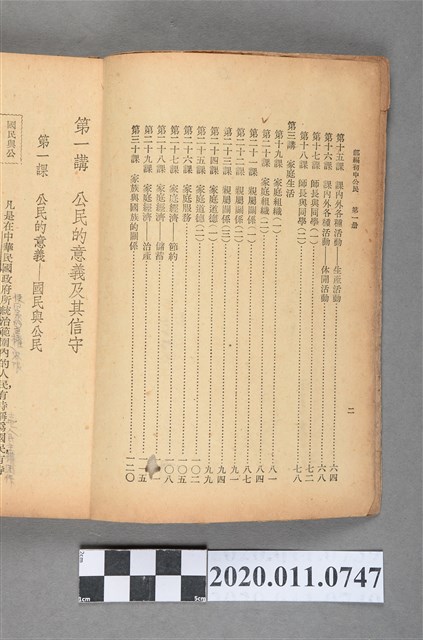 部編初中公民　第一册
二
第十五課　課內外各種活動——生產活動……六四
第十六課　課內外各種活動——休閒活動……六八
第十七課　師長與同學(一)……七二
第十八課　師長與同學(二)……七八
第三講　家庭生活
第十九課　家庭組織(一)……八一
第二十課　家庭組織(二)……八四
第二十一課　親屬關係(一)……八七
第二十二課　親屬關係(二)……九一
第二十三課　親屬關係(三)……九四
第二十四課　家庭道德(一)……九九
第二十五課　家庭道德(二)……一〇二
第二十六課　家庭服務……一〇五
第二十七課　家庭經濟——節約……一〇八
第二十八課　家庭經濟——儲蓄
第二十九課　家庭經濟——治產……一一五
第三十課　家族與國族的關係……一二〇
第一講　公民的意義及其信守
第一課　公民的意義——國民與公民
國民與公
凡是在中華民國政府所統治範圍內的人民，有時稱爲國民，有時
2cm
1cm
5cm
2020.011.0747